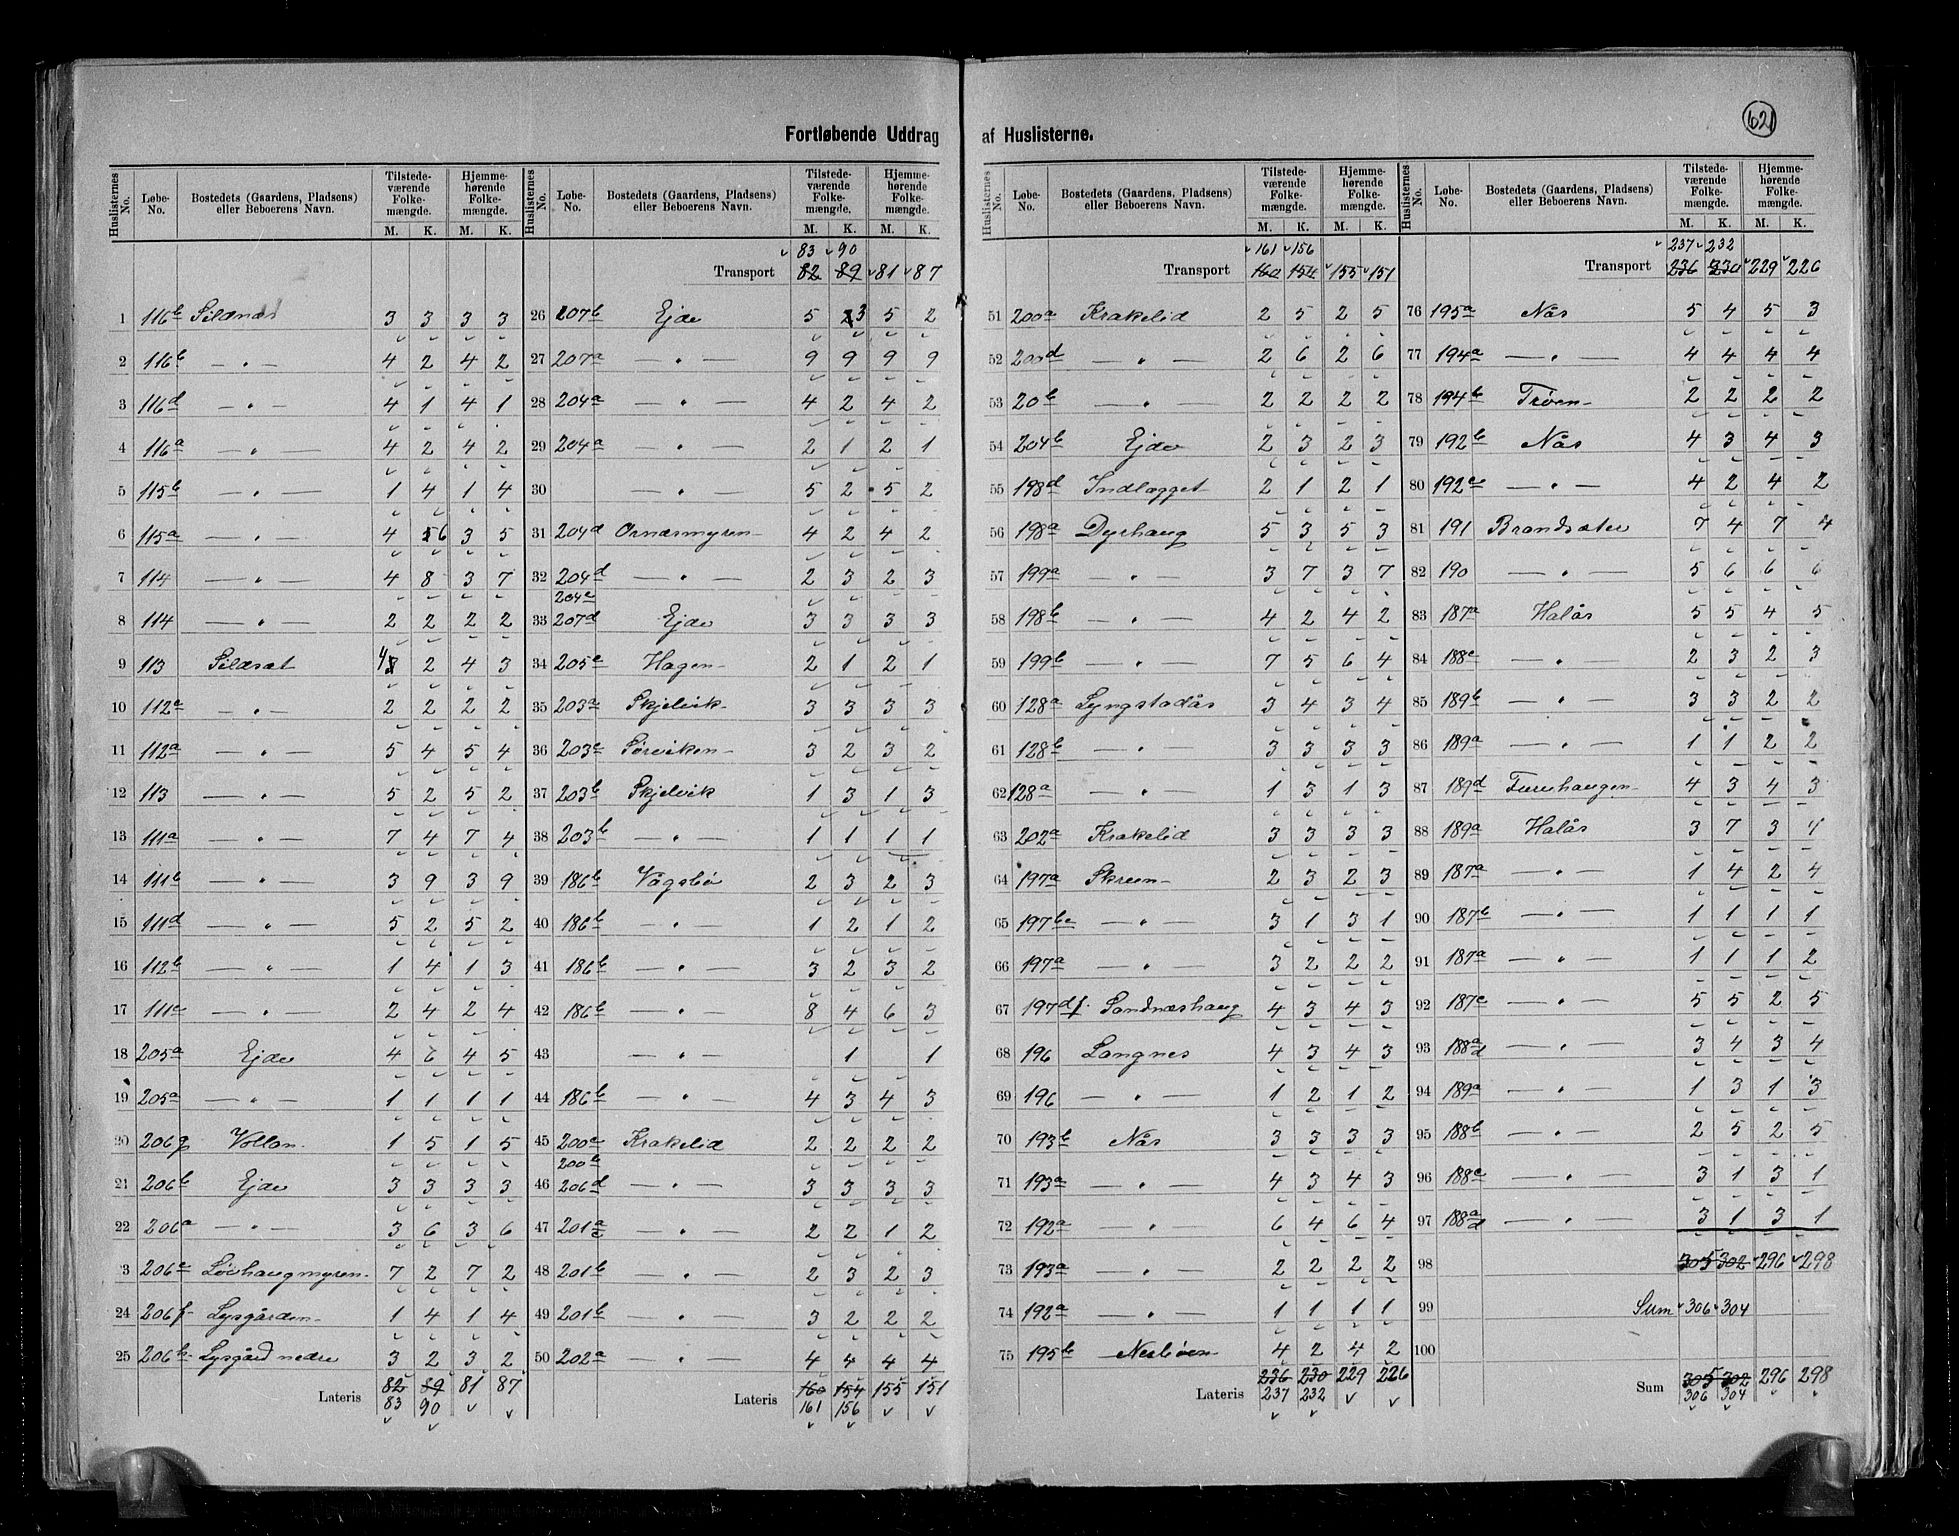 621
Fortløbende Uddrag af Huslisterne.
Huslisternes No. Løbe-No. Bostedets (Gaardens, Pladsens) eller Beboerens Navn. Tilstedeværende Folkemængde. M. K. Hjemmehørende Folkemængde. M. K.
1 116b Sildnæs 3 3 3 3
2 116b — " — 4 2 4 2
3 116d — " — 4 1 4 1
4 116a — " — 4 2 4 2
5 115b — " — 1 4 1 4
6 115a — " — 4 6 3 5
7 114 — " — 4 8 3 7
8 114 — " — 2 2 2 2
9 113 Sildsæt 4 2 4 3
10 112a — " — 2 2 2 2
11 112a — " — 5 4 5 4
12 113 — " — 5 2 5 2
13 111a — " — 7 4 7 4
14 111b — " — 3 9 3 9
15 111d — " — 5 2 5 2
16 112b — " — 1 4 1 3
17 111c — " — 2 4 2 4
18 205a Ejde 4 6 4 5
19 205a — " — 1 1 1 1
20 206g Vollan 1 5 1 5
21 206b Ejde 3 3 3 3
22 206a — " — 3 6 3 6
3 206e Løvhaugmyren 7 2 7 2
24 206f Lysgården 1 4 1 4
25 206h Lysgård nedre 3 2 3 2
Lateris 82 89 81 87
83 90
Huslisternes No. Løbe-No. Bostedets (Gaardens, Pladsens) eller Beboerens Navn. Tilstedeværende Folkemængde. M. K. Hjemmehørende Folkemængde. M. K.
83 90
Transport 82 89 81 87
26 207b Ejde 5 3 5 2
27 207a — " — 9 9 9 9
28 204a — " — 4 2 4 2
29 204a — " — 2 1 2 1
30 — " — 5 2 5 2
31 204d Ornæsmyren 4 2 4 2
32 204d — " — 2 3 2 3
204e
33 207d Ejde 3 3 3 3
34 205e Hagen 2 1 2 1
35 203a Skjelvik 3 3 3 3
36 203c Sørviken 3 2 3 2
37 203b Skjelvik 1 3 1 3
38 203b — " — 1 1 1 1
39 186b Vågsbø 2 3 2 3
40 186b — " — 1 2 1 2
41 186b — " — 3 2 3 2
42 186b — " — 8 4 6 3
43 — " — 1 1
44 186b — " — 4 3 4 3
45 200c Krakelid 2 2 2 2
200b
46 206d — " — 3 3 3 3
47 201a c — " — 2 2 1 2
48 201b — " — 2 3 2 3
49 201b — " — 3 2 2 2
50 202a — " — 4 4 4 4
Lateris 160 154 155 151
161 156
Huslisternes No. Løbe-No. Bostedets (Gaardens, Pladsens) eller Beboerens Navn. Tilstedeværende Folkemængde. M. K. Hjemmehørende Folkemængde. M. K.
161 156
Transport 160 154 155 151
51 200a Krakelid 2 5 2 5
52 200d — " — 2 6 2 6
53 20b — " — 2 2 2 2
54 204b Ejde 2 3 2 3
55 198d Indlægget 2 1 2 1
56 198a Dyrhaug 5 3 5 3
57 199a — " — 3 7 3 7
58 198b — " — 4 2 4 2
59 199b — " — 7 5 6 4
60 128a Lyngstadås 3 4 3 4
61 128b — " — 3 3 3 3
62 128a — " — 1 3 1 3
63 202a Krakelid 3 3 3 3
64 197a Skreen 2 3 2 3
65 197bc — " — 3 1 3 1
66 197a — " — 3 2 2 2
67 197df Sandnæshaug 4 3 4 3
68 196 Langnes 4 3 4 3
69 196 — " — 1 2 1 2
70 193b Nås 3 3 3 3
71 193a — " — 4 3 4 3
72 192a — " — 6 4 6 4
73 193a — " — 2 2 2 2
74 192a — " — 1 1 1 1
75 195b Nesbøen 4 2 4 2
Lateris 236 230 229 226
237 232
Huslisternes No. Løbe-No. Bostedets (Gaardens, Pladsens) eller Beboerens Navn. Tilstedeværende Folkemængde. M. K. Hjemmehørende Folkemængde. M. K.
237 232
Transport 236 230 229 226
76 195a Nås 5 4 5 3
77 194a — " — 4 4 4 4
78 194b Trøen 2 2 2 2
79 192b Nås 4 3 4 3
80 192c — " — 4 2 4 2
81 191 Brandsæter 7 4 7 4
82 190 — " — 5 6 6 6
83 187a Halås 5 5 4 5
84 188c — " — 2 3 2 3
85 189b — " — 3 3 2 2
86 189a — " — 1 1 2 2
87 189d Furuhaugen 4 3 4 3
88 189a Halås 3 7 3 4
89 187a — " — 1 4 2 4
90 187b — " — 1 1 1 1
91 187a — " — 1 1 1 2
92 187c — " — 5 5 2 5
93 188a d — " — 3 4 3 4
94 189a — " — 1 3 1 3
95 188b — " — 2 5 2 5
96 188c — " — 3 1 3 1
97 188a d — " — 3 1 3 1
98 305 302 296 298
99 Sum 306 304
100
Sum 305 302 296 298
306 304